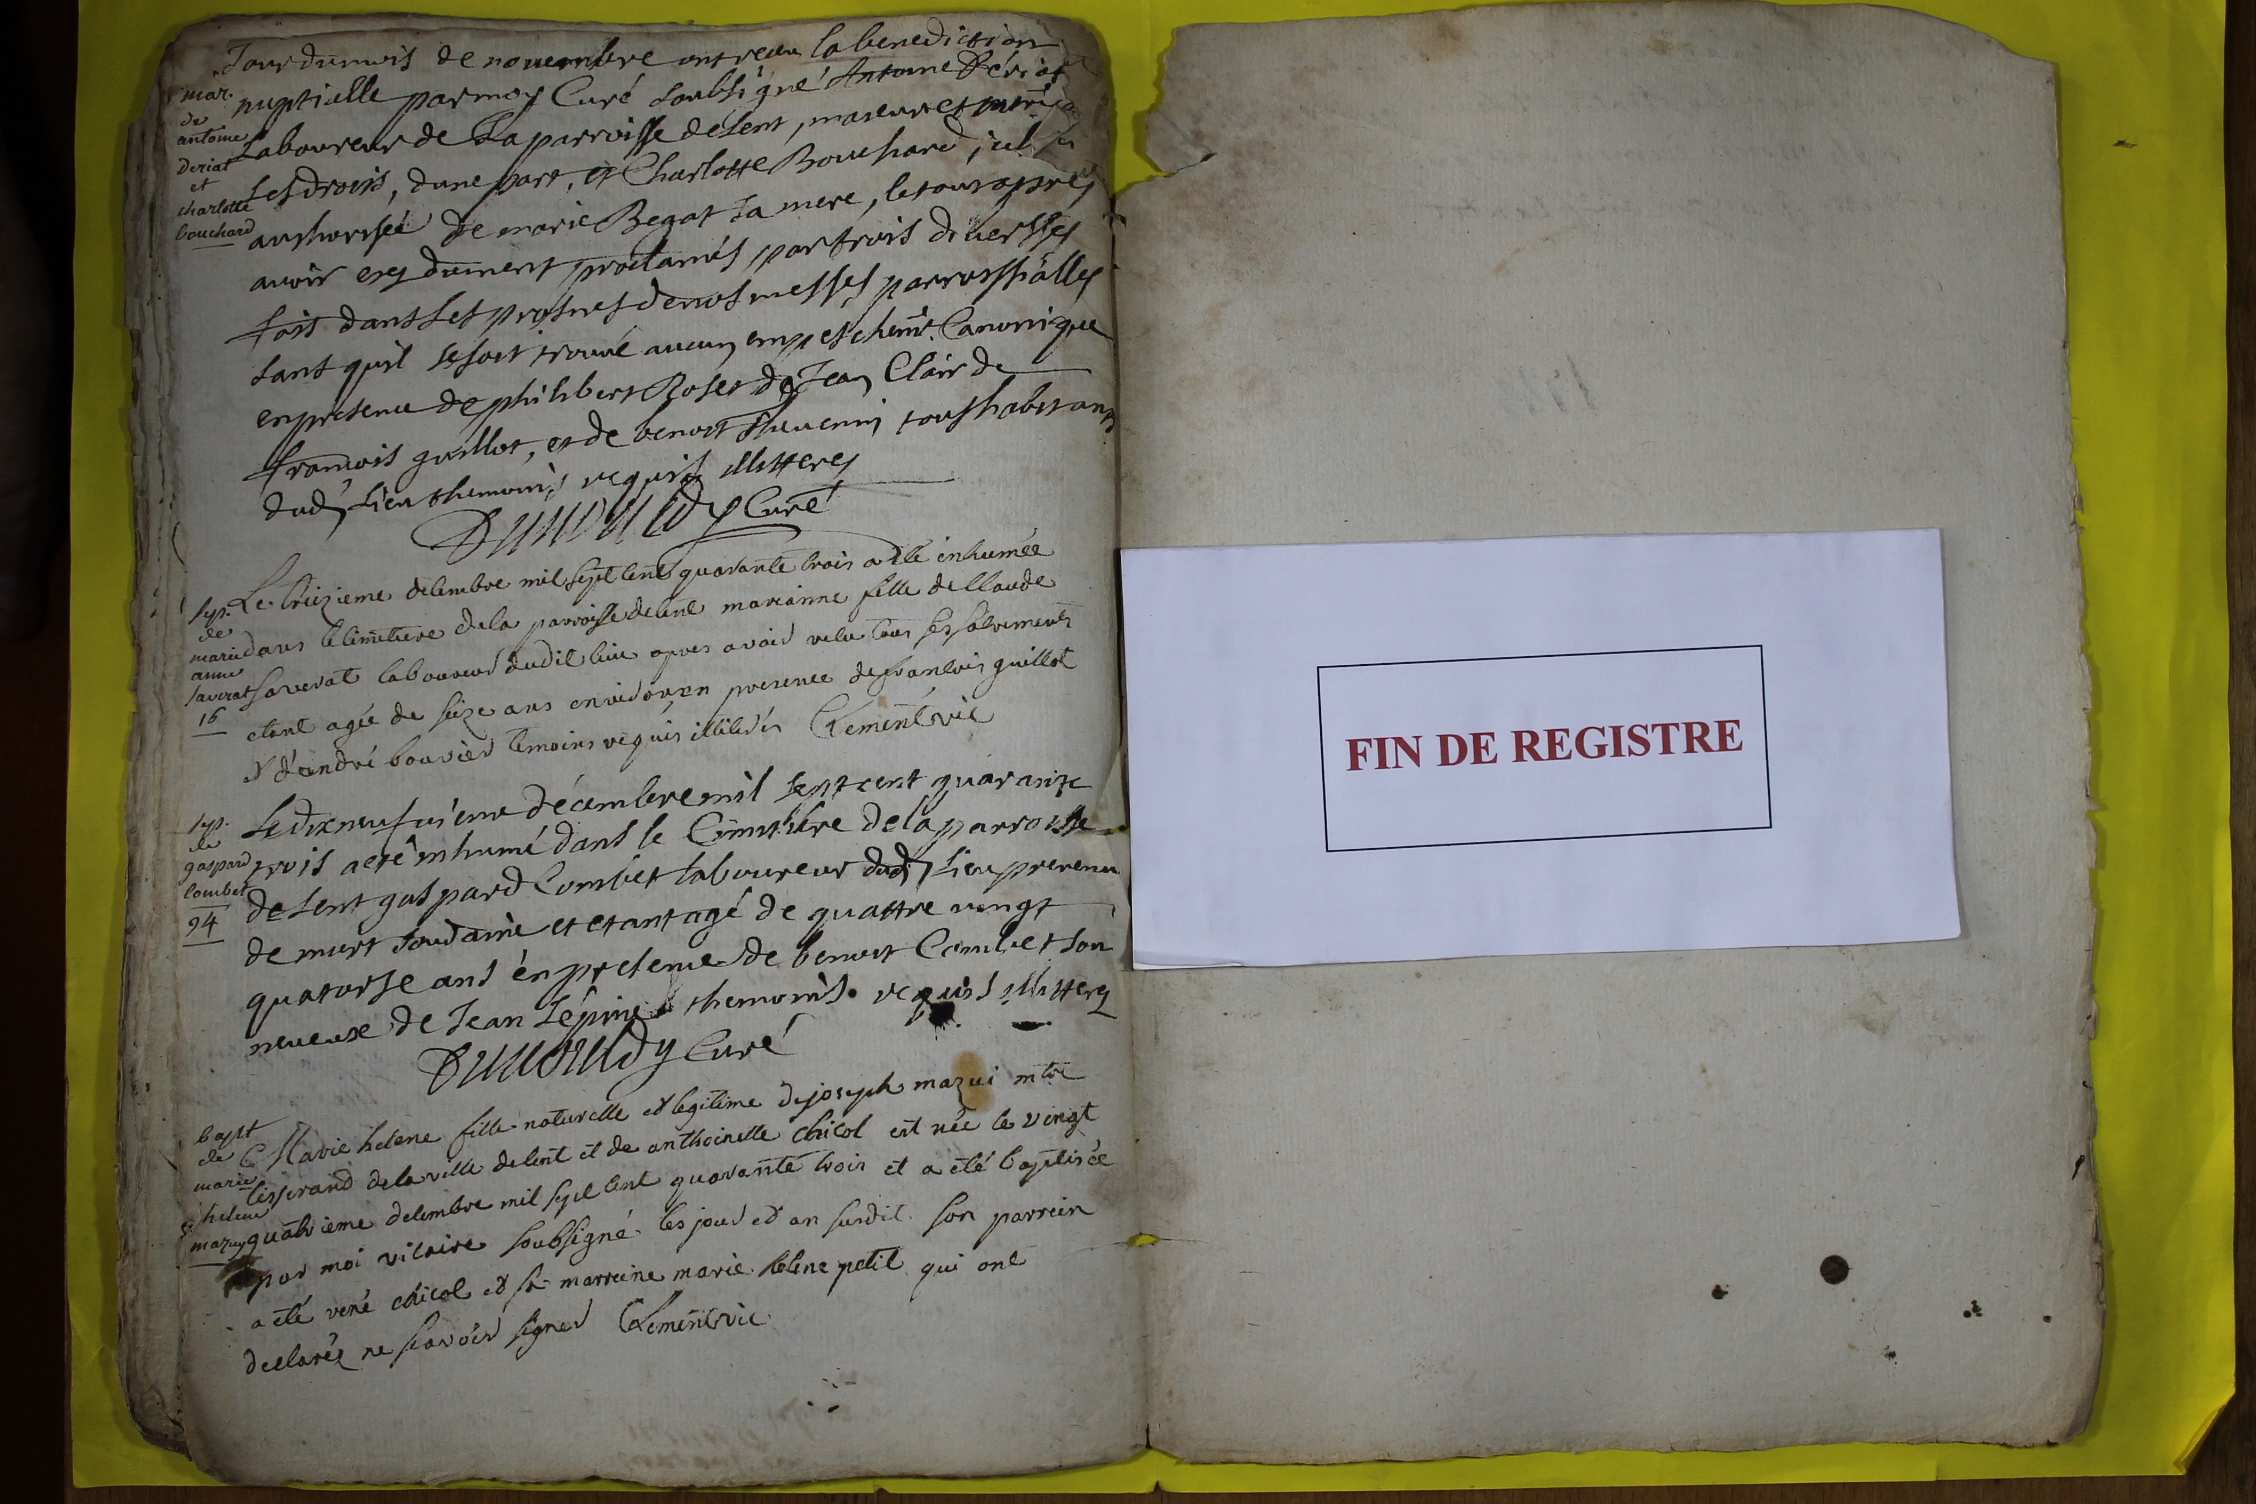 Jour du mois de novembre ont receu la benediction
nuptialle par moy Curé soubsigné Antoine Dériat
Laboureur de la parroisse de lent, maieur et
ses drois, d'une part, et Charlotte Bouchard,
authorisée de marie Begat sa mere, le tout apres
avoir esté dument proclamés par trois diverses
fois dans les prosnes de nos messes parroissialles
sans quil se soit trouvé aucun empeschemt. Canonique
en presence de philibert Roset de Jean Clair de
francois guillot, et de benoit thevenin tous habitans
dud. Lieu themoins requis illitterés
Curé
mar.
de
antoine
Deriat
et
charlotte
bouchard
Le treizieme decembre mil sept cent quarante trois a été inhumée
dans le cimetiere de la parroisse de lent marianne fille de Claude
saverat laboureur dudit lieu apres avoir reçu tous ses sacrements
etant agée de seize ans environ, en presence de francois guillot
et d'andré bouvier temoins requis illiterés Clement vic
sep.
de
marie
anne
saverat
16
Le dixneufvieme décembre mil sept cent quarante
trois a eté inhumé dans le Cimetiére de la parroisse
de lent gaspard Combet laboureur dud. Lieu prevenu
de mort soudaine et etant agé de quattre vingt
quatorse ans en presence de benoit Combet son
neveux de Jean Lépine themoins requis illitterés
Curé
sep.
de
gaspard
combet
94
Marie helene fille naturelle et legitime de joseph mazui mtre
tisserand de la ville de lent et de anthoinette chicol est née le vingt
quatrieme decembre mil sept cent quarante trois et a eté baptisée
par moi vicaire soubsigné les jour et an susdit. son parrein
a eté rené chicol et sa marreine marie helene petit qui ont
declarés ne scavoir signer Clement vic
bapt
de
marie
helene
mazuy
FIN DE REGISTRE